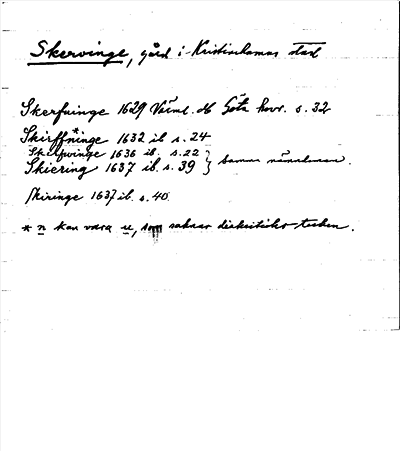 Skervinge, gård i Kristinehamns stad
Skerfuinge 1629 Värml. db Göta hovr. s. 32
Skirffn*inge 1632 ib s. 24
Skifwinge 1636 ib. s. 22
Skiering 1637 ib. s. 39 } samma nämndeman.
Skiringe 1637 ib. s. 40.
* n kan vara u, som saknar diakritiskt tecken.